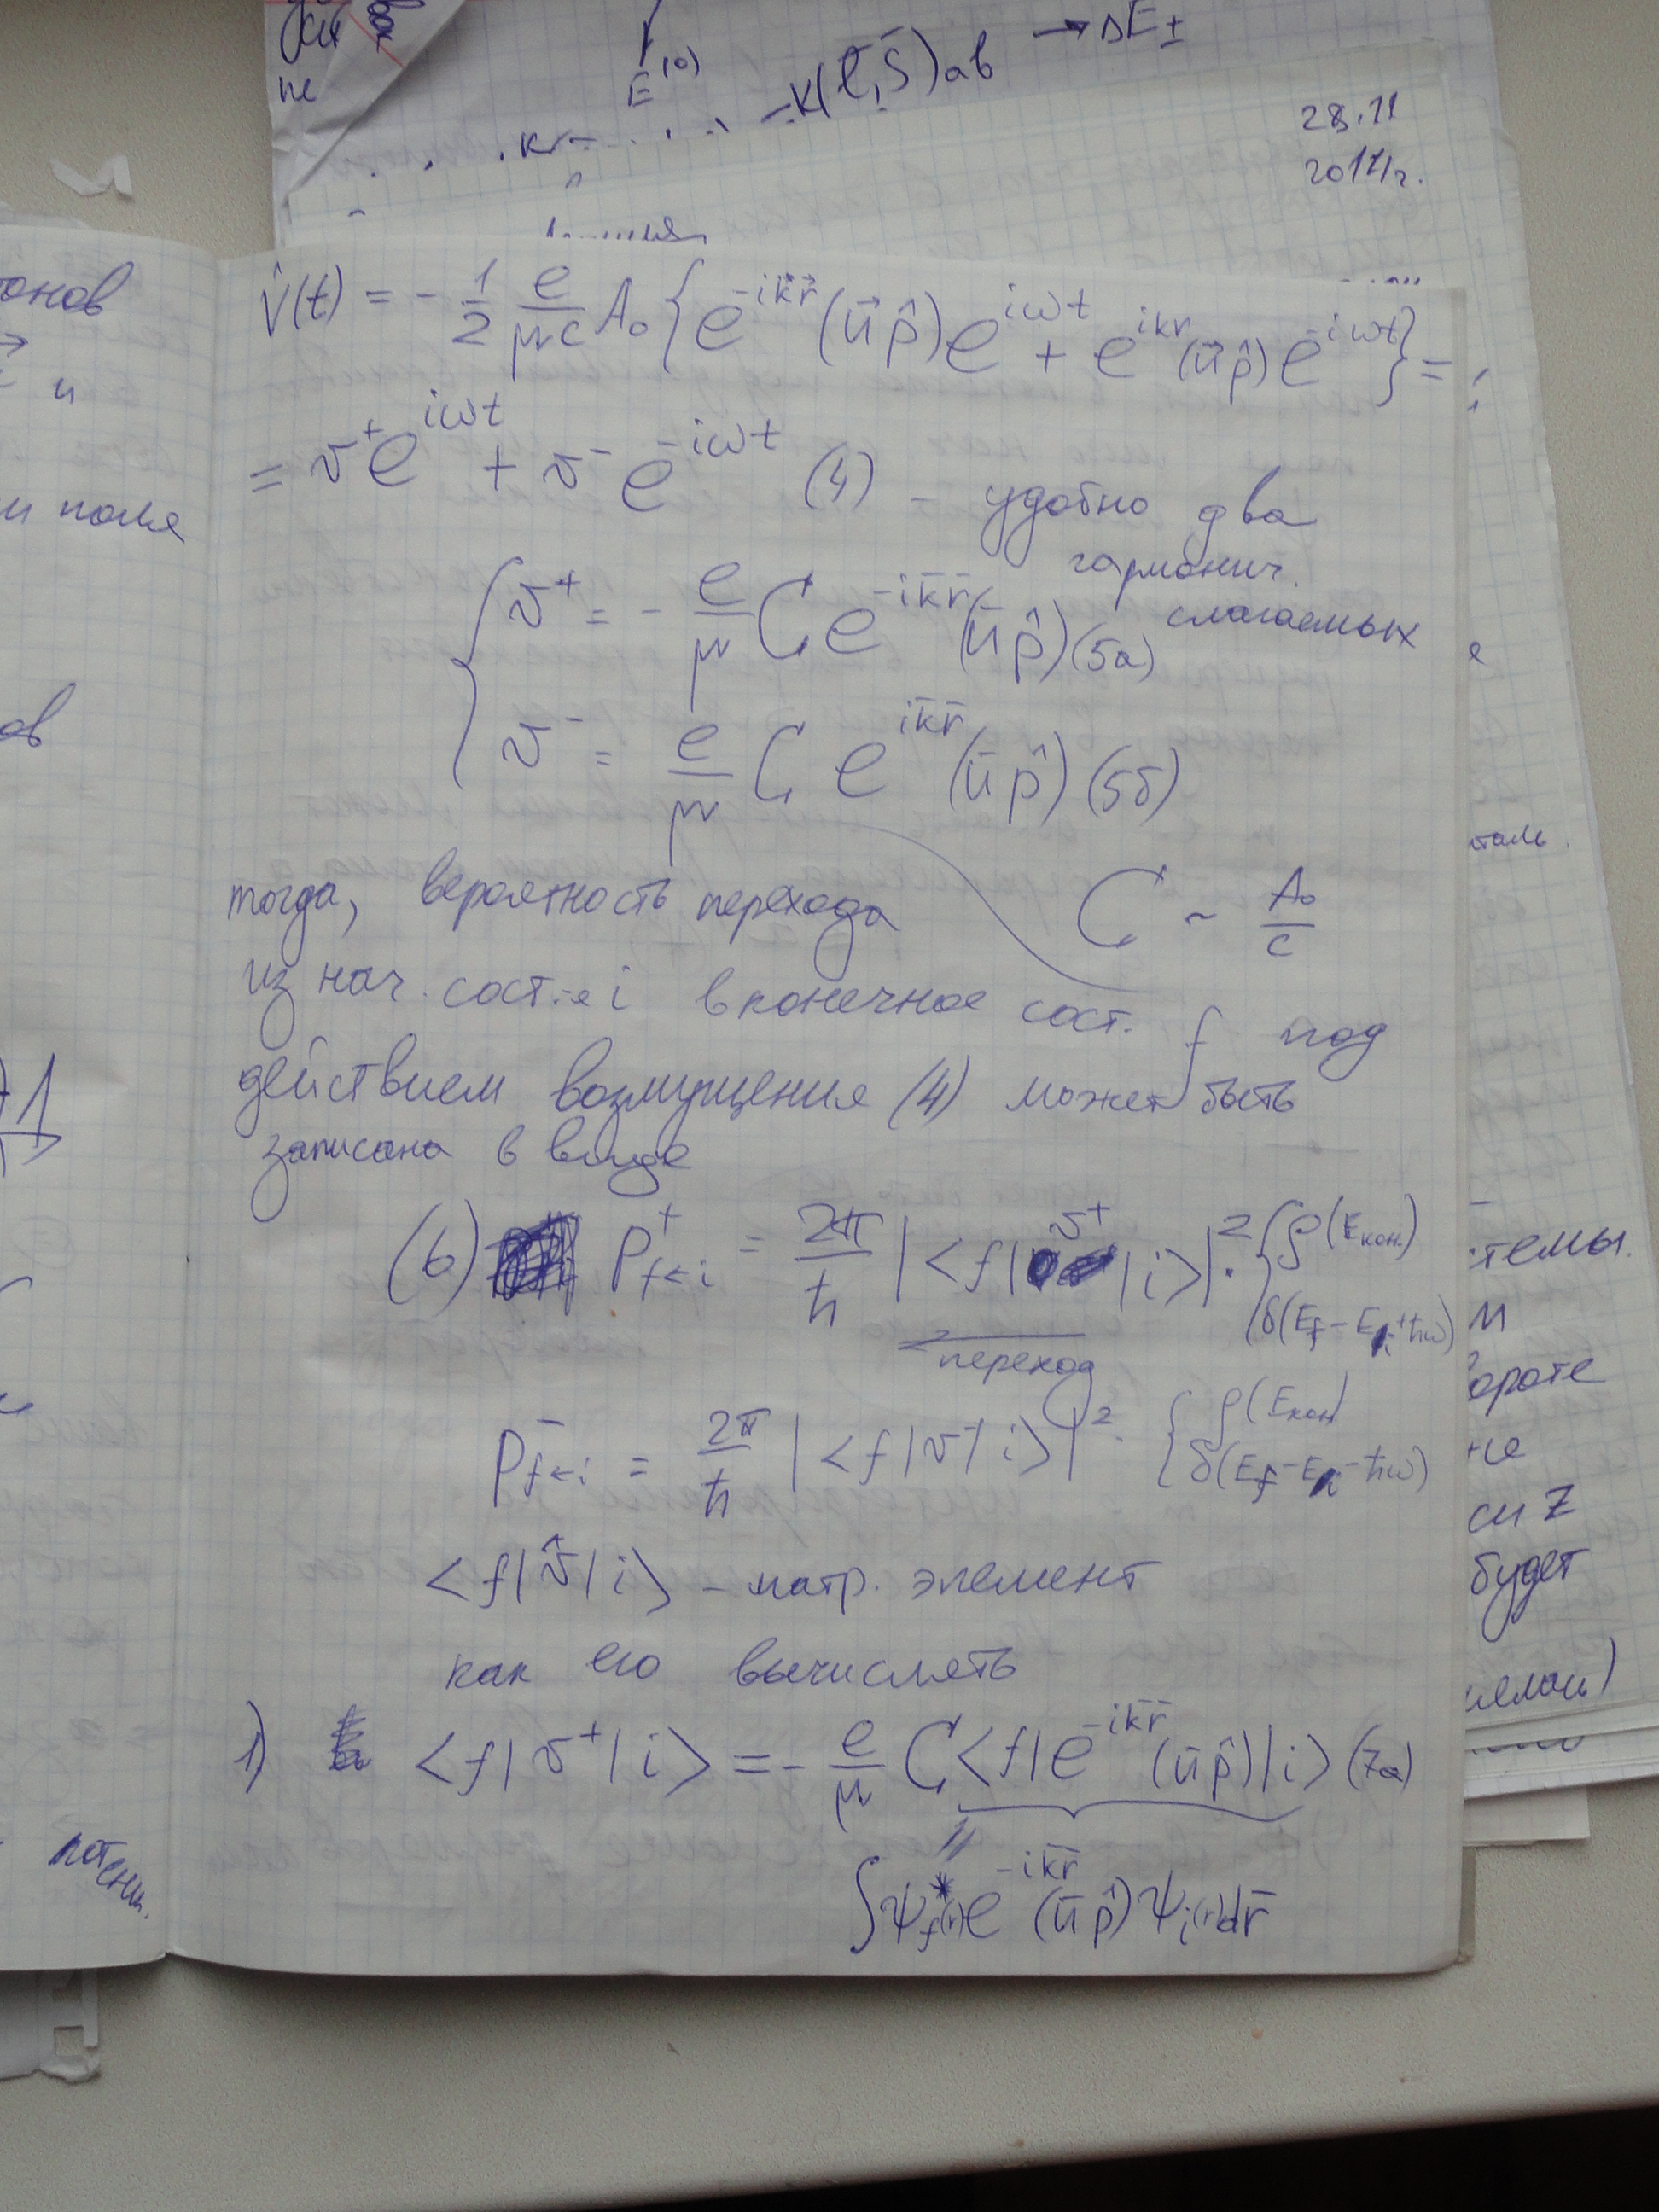 не
E⁽⁰⁾
-K(l⃗,S⃗)ab → ΔE±
28.11
2017г.
онов
и
и поля
ов
потенц.
V̂(t) = - 1/2 e/μc A₀ { e^{-ik⃗r⃗} (u⃗p̂) e^{iωt} + e^{ikr} (u⃗p̂) e^{-iωt} } =
= v⁺e^{iωt} + v⁻e^{-iωt} (4) - удобно два
гармонич.
слагаемых
{ v⁺ = - e/μ C e^{-ik̄r̄} (ūp̂) (5а)
v⁻ = e/μ C e^{ik̄r̄} (ūp̂) (5б)
тогда, вероятность перехода C ~ A₀/c
из нач. сост-е i в конечное сост. f под
действием возмущения (4) может быть
записана в виде
(6) P⁺_{f←i} = 2π/ħ |<f|v⁺|i>|² · { ρ(E_{кон.})
δ(E_f - E_i + ħω)
переход
P⁻_{f←i} = 2π/ħ |<f|v⁻|i>|² · { ρ(E_{кон})
δ(E_f - E_i - ħω)
<f|v̂|i> - матр. элемент
как его вычислять
1) <f|v⁺|i> = - e/μ C <f|e^{-ik̄r̄} (ūp̂)|i> (7а)
∫ψ*_f(r) e^{-ik̄r̄} (ūp̂) ψ_i(r) dr̄
таль.
темы.
м
ороте
не
си z
будет